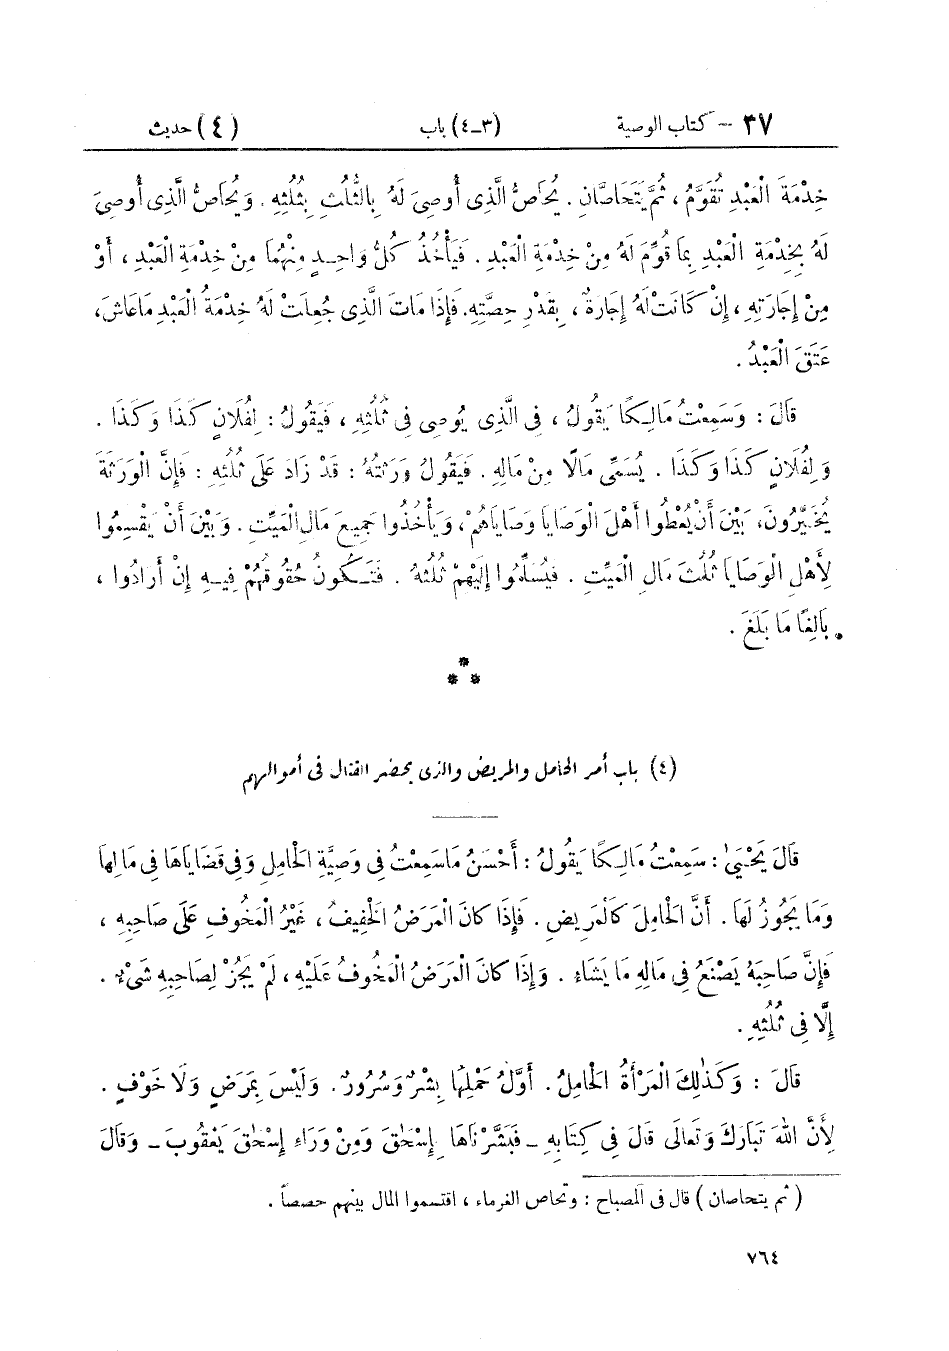 ٣٧ – كتاب الوصية (٣-٤) باب (٤) حديث
خِدْمَةَ الْعَبْدِ تُقَوَّمُ ، ثُمَّ يَتَحَاصَّانِ . يُحَاصُّ الَّذِى أُوصِىَ لَهُ بِالثُّلُثِ بِثُلُثِهِ . وَيُحَاصُّ الَّذِى أُوصِىَ
لَهُ بِخِدْمَةِ الْعَبْدِ بِمَا قُوِّمَ لَهُ مِنْ خِدْمَةِ الْعَبْدِ . فَيَأْخُذُ كُلُّ وَاحِدٍ مِنْهُمَا مِنْ خِدْمَةِ الْعَبْدِ ، أَوْ
مِنْ إِجَارَتِهِ ، إِنْ كَانَتْ لَهُ إِجَارَةٌ ، بِقَدْرِ حِصَّتِهِ. فَإِذَا مَاتَ الَّذِى جُعِلَتْ لَهُ خِدْمَةُ الْعَبْدِ مَاعَاشَ،
عَتَقَ الْعَبْدُ .
قَالَ : وَسَمِعْتُ مَالِكًا يَقُولُ ، فِى الَّذِى يُوصِى فِى ثُلُثِهِ ، فَيَقُولُ : لِفُلَانٍ كَذَا وَكَذَا .
وَلِفُلَانٍ كَذَا وَكَذَا . يُسَمِّى مَالًا مِنْ مَالِهِ . فَيَقُولُ وَرَثَتُهُ : قَدْ زَادَ عَلَى ثُلُثِهِ : فَإِنَّ الْوَرَثَةَ
يُخَيَّرُونَ، بَيْنَ أَنْ يُعْطُوا أَهْلَ الْوَصَايَا وَصَايَاهُمْ، وَيَأْخُذُوا جَمِيعَ مَالِ الْمَيِّتِ . وَبَيْنَ أَنْ يَقْسِمُوا
لِأَهْلِ الْوَصَايَا ثُلُثَ مَالِ الْمَيِّتِ . فَيُسَلِّمُوا إِلَيْهِمْ ثُلُثَهُ . فَتَكُونُ حُقُوقُهُمْ فِيهِ إِنْ أَرَادُوا ،
بَالِغًا مَا بَلَغَ .
* * *
(٤) باب أمر الحامل والمريض والذى يحضر القتال فى أموالهم
قَالَ يَحْيَىٰ : سَمِعْتُ مَالِكًا يَقُولُ : أَحْسَنُ مَاسَمِعْتُ فِى وَصِيَّةِ الْحَامِلِ وَفِى قَضَايَاهَا فِى مَالِهَا
وَمَا يَجُوزُ لَهَا . أَنَّ الْحَامِلَ كَالْمَرِيضِ . فَإِذَا كَانَ الْمَرَضُ الْخَفِيفُ ، غَيْرُ الْمَخُوفِ عَلَى صَاحِبِهِ ،
فَإِنَّ صَاحِبَهُ يَصْنَعُ فِى مَالِهِ مَا يَشَاءُ . وَإِذَا كَانَ الْمَرَضُ الْمَخُوفُ عَلَيْهِ ، لَمْ يَجُزْ لِصَاحِبِهِ شَىْءٌ .
إِلَّا فِى ثُلُثِهِ .
قَالَ : وَكَذٰلِكَ الْمَرْأَةُ الْحَامِلُ . أَوَّلُ حَمْلِهَا بِشْرٌ وَسُرُورٌ . وَلَيْسَ بِمَرَضٍ وَلَا خَوْفٍ .
لِأَنَّ اللهَ تَبَارَكَ وَتَعَالَى قَالَ فِى كِتَابِهِ ـ فَبَشَّرْنَاهَا بِإِسْحٰقَ وَمِنْ وَرَاءِ إِسْحٰقَ يَعْقُوبَ ـ وَقَالَ
( ثم يتحاصان ) قال فى المصباح : وتحاص الغرماء ، اقتسموا المال بينهم حصصاً .
٧٦٤